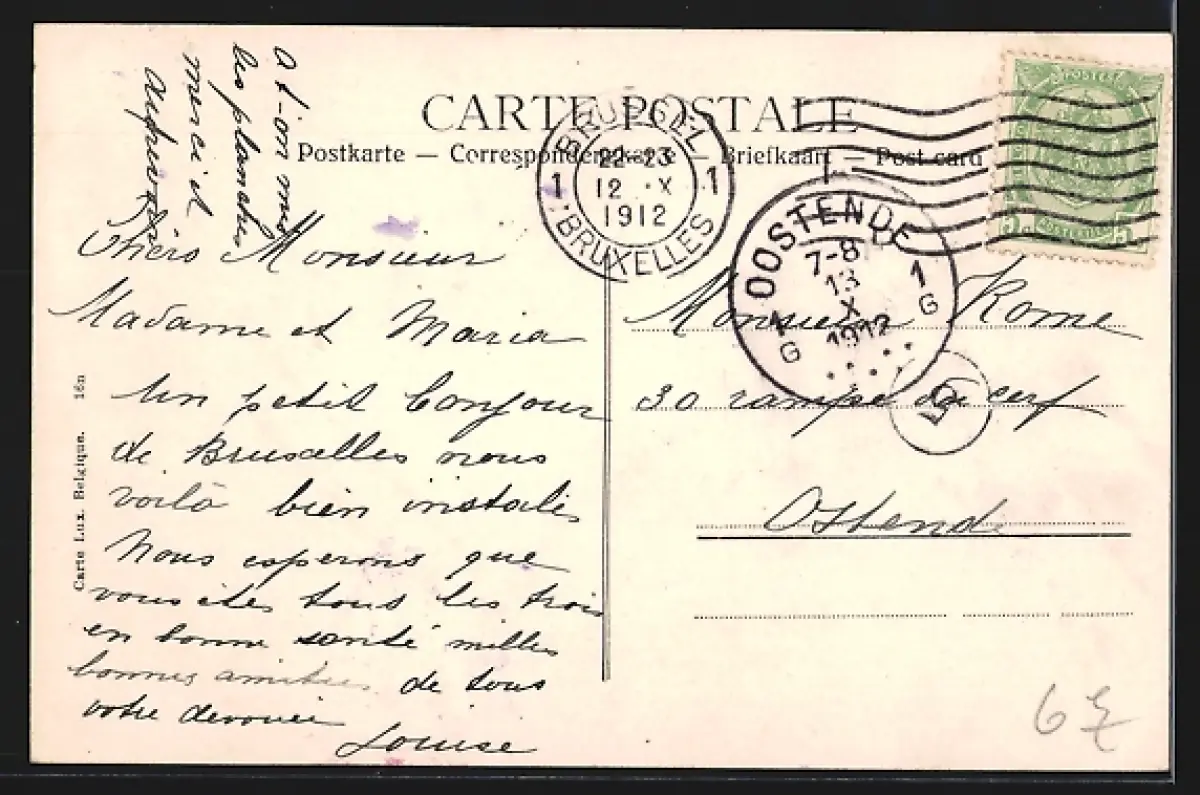 CARTE POSTALE
Postkarte — Correspondenzkarte — Briefkaart — Post card
At-on mis
les planches
merci et
au revoir
Chers Monsieur
Madame et Maria
Un petit bonjour
de Bruxelles nous
voilà bien instalés
Nous esperons que
vous etes tous les trois
en bonne santé milles
bonnes amitiés de tous
votre devouée
Louise
Carte Lux. Belgique. 16n
BRUSSEL
1 22-23 1
12 X
1912
BRUXELLES
OOSTENDE
7-8
13
X
1912
1 G
1 G
POSTES
5
5
Monsieur Rome
30 rampe du cerf
Ostende
5